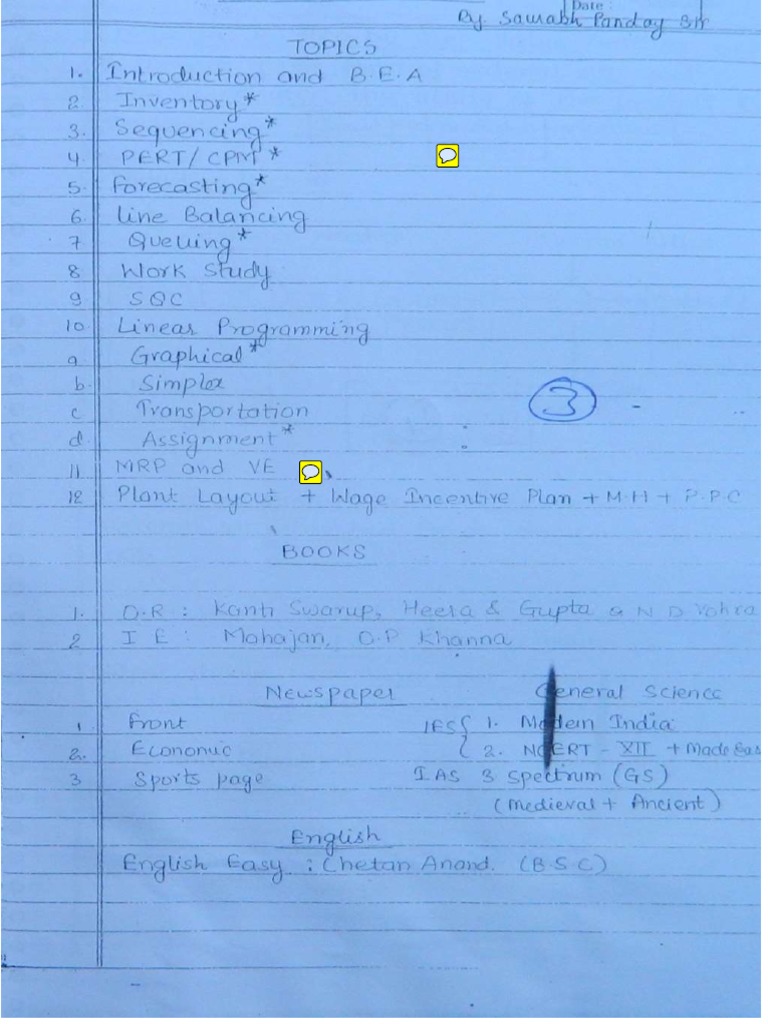 Date
By Saurabh Panday Sir
TOPICS
1. Introduction and B.E.A
2. Inventory*
3. Sequencing*
4. PERT/CPM *
5. Forecasting*
6. Line Balancing
7 Queuing*
8 Work Study
9 SQC
10. Linear Programming
a Graphical*
b. Simplex
c Transportation
d. Assignment*
3
11 MRP and VE
12 Plant Layout + Wage Incentive Plan + M.H + P.P.C
BOOKS
1. O.R : Kanti Swarup, Heera & Gupta & N D Vohra
2 I E : Mahajan, O.P Khanna
Newspaper General Science
1 Front IES { 1. Modern India
2. Economic 2. NCERT - XII + Made Eas
3 Sports page IAS 3 Spectrum (GS)
(Medieval + Ancient)
English
English Easy : Chetan Anand. (B.S.C)